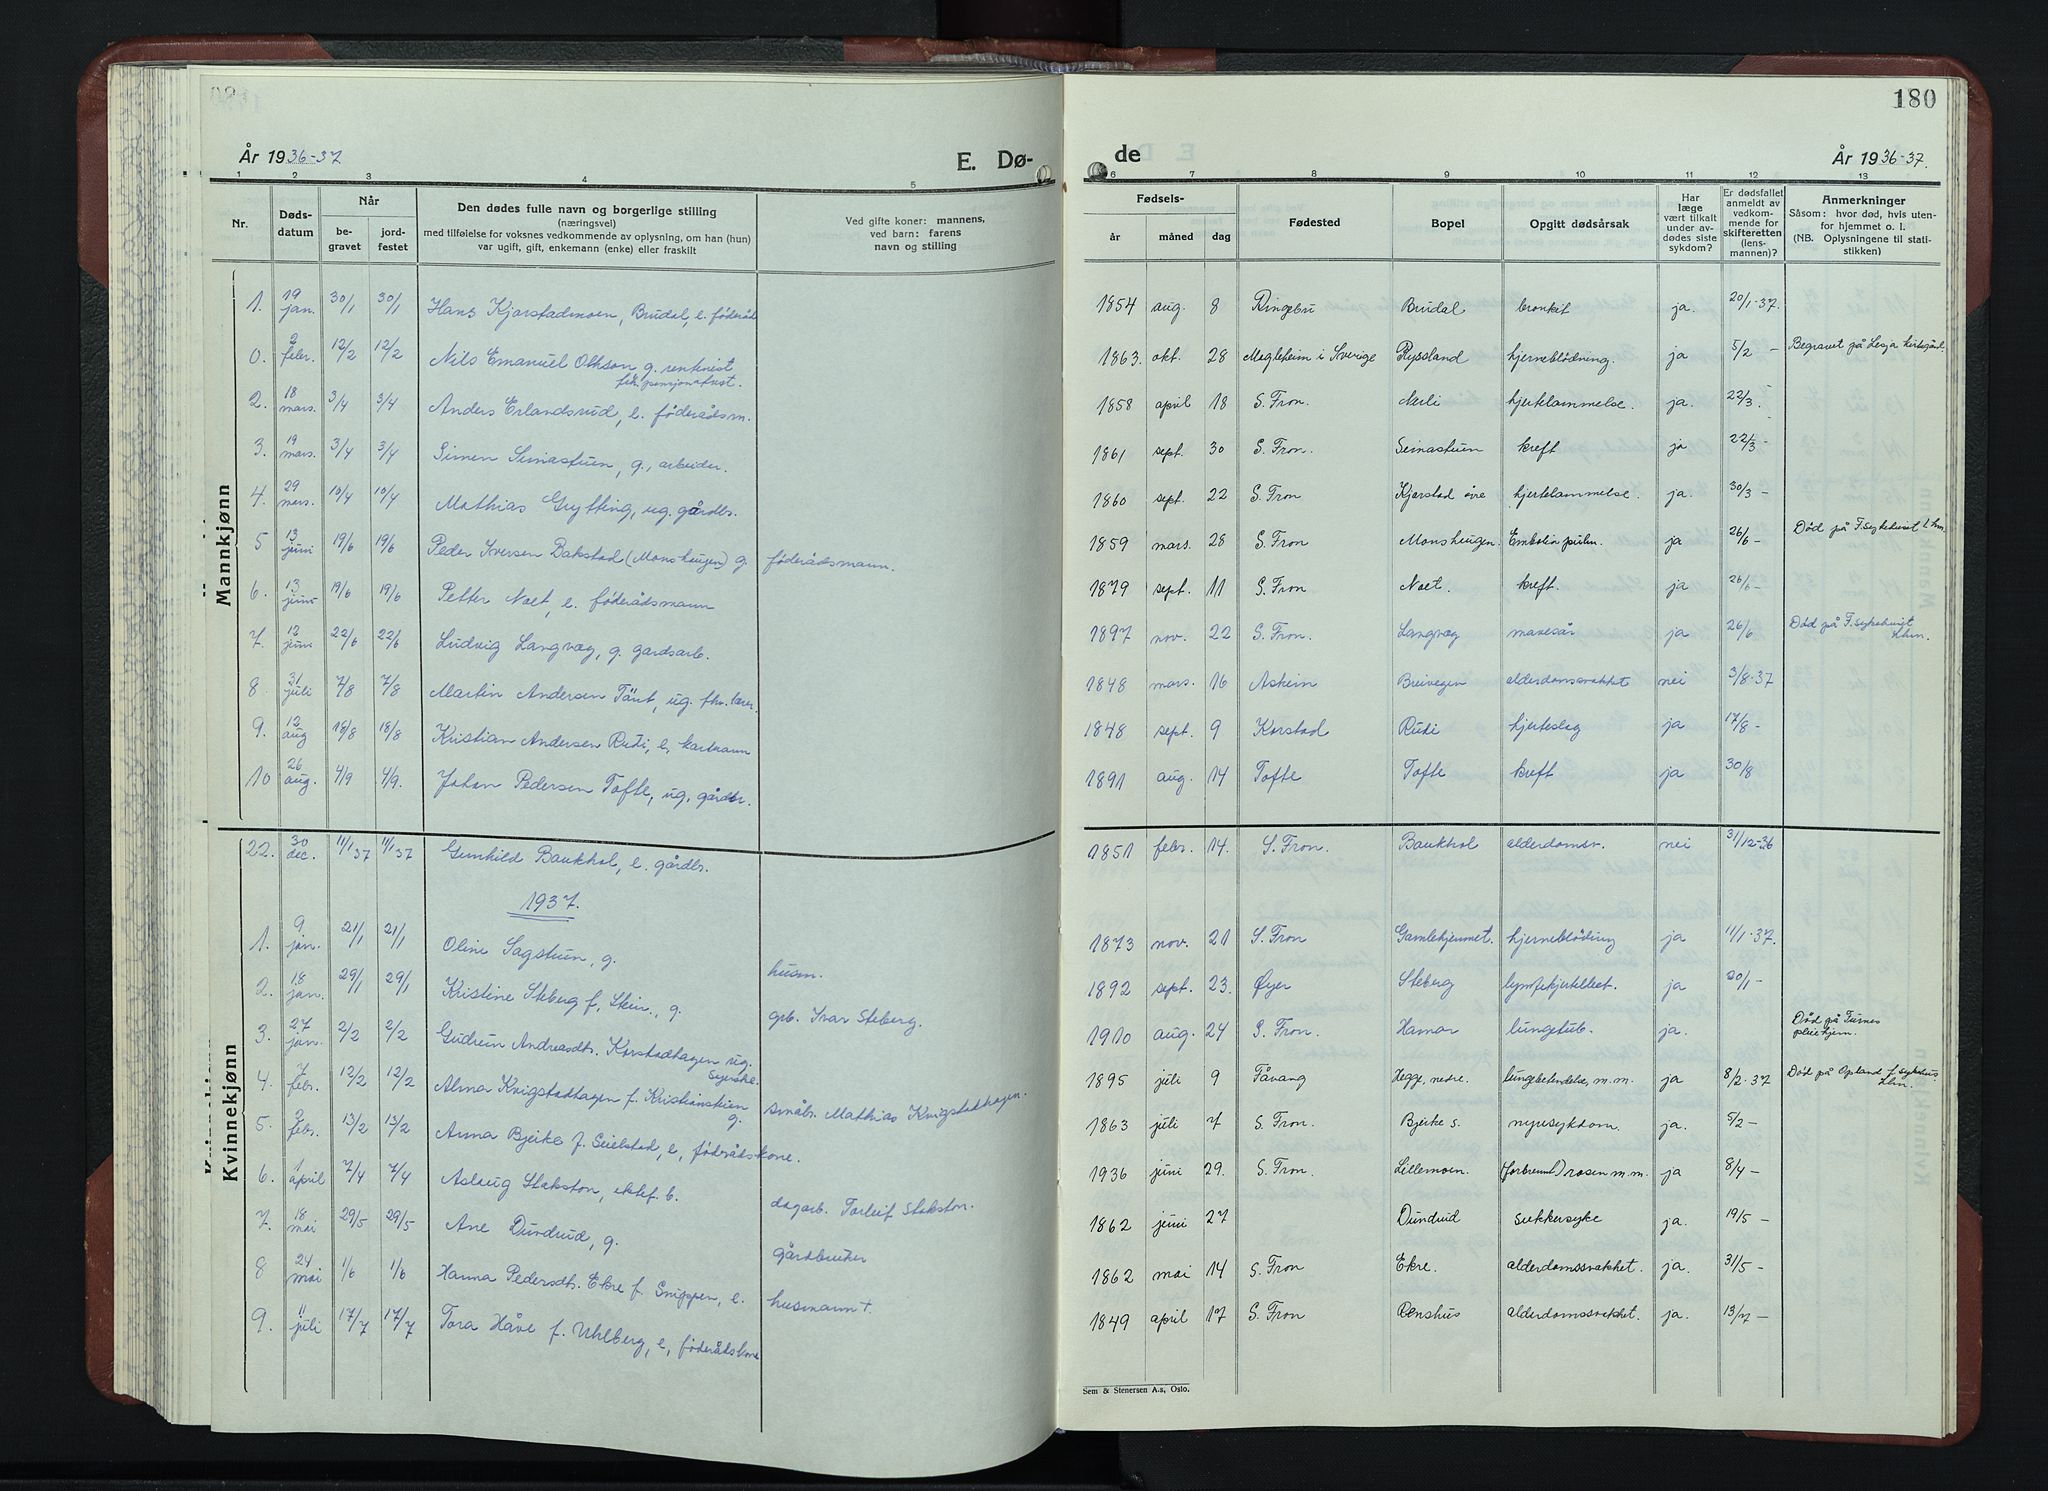 180
År 1936-37
E. Dø-
de
År 1936-37.
1 2 3 4 5 6 7 8 9 10 11 12 13
Nr.
Døds-
datum
Når
be-
gravet
jord-
festet
Den dødes fulle navn og borgerlige stilling
(næringsvei)
med tilføielse for voksnes vedkommende av oplysning, om han (hun)
var ugift, gift, enkemann (enke) eller fraskilt
Ved gifte koner: mannens,
ved barn: farens
navn og stilling
Fødsels-
år måned dag
Fødested
Bopel
Opgitt dødsårsak
Har
læge
vært tilkalt
under av-
dødes siste
sykdom?
Er dødsfallet
anmeldt av
vedkom-
mende for
skifteretten
(lens-
mannen)?
Anmerkninger
Såsom: hvor død, hvis uten-
for hjemmet o. l.
(NB. Oplysningene til stati-
stikken)
Mannkjønn
1. 19 jan. 30/1 30/1 Hans Kjorstadmoen, Brudal, e. føderåd 1854 aug. 8 Ringebu Brudal bronkit ja. 20/1-37.
0. 2 febr. 12/2 12/2 Nils Emanuel Olhson g. rentenist 1863. okt. 28 Magleheim i Sverige Ryssland hjerneblödning. ja 5/2 - Begravet på Lesja kirkegård.
fh. pensjonatvst.
2. 18 mars. 3/4 3/4 Anders Erlandsrud, e. føderådsm. 1858 april 18 S. Fron. Nerli hjertelammelse. ja. 22/3. -
3. 19 mars. 3/4 3/4 Simen Seinastuen, g., arbeider. 1861 sept. 30 S. Fron. Seinastuen kreft ja 22/3 -
4. 29 mars. 10/4 10/4 Mathias Grytting, ug. gårdbr. 1860 sept. 22 S. Fron Kjorstad øvre hjertelammelse. ja. 30/3 -
5 13 juni 19/6 19/6 Peder Iversen Bakstad (Monshaugen) g. føderådsmann. 1859 mars. 28 S. Fron Monshaugen. Embolia pulm. ja 26/6 - Død på F.sykehuset L.hm.
6. 13 juni 19/6 19/6 Petter Noet, e. føderådsmann 1879 sept. 11 S. Fron Noet. kreft. ja 26/6 -
7. 12 juni 22/6 22/6 Ludvig Langvæg, g. gardsarb. 1897 nov. 22 S. Fron. Langvæg mavesår ja 26/6 Død på F.sykehuset
L.hm.
8. 31 juli 7/8 7/8 Martin Andersen Töut, ug. fhv. lærer. 1848 mars. 16 Askeim Breivegen alderdomssvakhet nei 3/8-37
9. 12 aug 18/8 18/8 Kristian Andersen Rudi, e, kaarmann 1848 sept. 9 Korstad Rudi hjerteslag ja 17/8 -
10 26 aug. 4/9 4/9. Johan Pedersen Tofte, ug. gårdbr. 1891 aug. 14 Tofte Tofte kreft ja 30/8
Kvinnekjønn
22. 30 dec. 11/1 37 11/1 37 Gunhild Baukhol, e. gårdbr. 1851 febr. 14. S. Fron. Baukhol alderdomsv. nei 31/12-36
1937.
1. 9 jan. 21/1 21/1 Oline Sagstuen, g. husm. 1873 nov. 21 S. Fron Gamlehjemmet. hjerneblöding ja 11/1-37.
2. 18 jan. 29/1 29/1 Kristine Steberg f. Stein., g. grb. Ivar Steberg. 1892 sept. 23. Øyer Steberg lymfekjertelbet. ja 20/1 -
3. 27 jan. 2/2 2/2 Gudrun Andreasdtr. Korstadhagen ug. 1910 aug. 24 S. Fron. Hamar lungetub. ja. Død på Furnes
pleiehjem.
syerske.
4. 7 febr. 12/2 12/2 Alma Kvigstadhagen f. Kristianskien g. småbr. Mathias Kvigstadhagen. 1895 juli 9 Fåvang Hegge, nedre. lungebetendelse, m.m. ja 8/2-37 Død på Opland f. sykehus
L.hm.
5. 2 febr. 13/2 13/2 Anna Bjerke f. Seielstad, e, føderådskone. 1863 juli 7 S. Fron. Bjerke s. nyresykdom. ja. 5/2 -
6. 1 april 7/4 7/4 Aslaug Stakston, ektef. b. dagarb. Torleif Stakston. 1936 juni 29. S. Fron. Lillemoen. (forbrent) rosen m.m. ja 8/4 -
7. 18 mai 29/5 29/5 Ane Dundrud, g. gårdbruker 1862 juni 27 Dundrud sukkersyke ja. 19/5 -
8 24 mai 1/6 1/6 Hanna Pedersdtr. Ekre f. Snippen, e. husmann +. 1862 mai 14 S. Fron Ekre. alderdomssvakhet. ja. 31/5 -
9. 11 juli 17/7 17/7 Tora Håve f. Uhlberg, e, føderådskone 1849 april 17 S. Fron Renshus alderdomssvakhet. ja. 13/7 -
Sem & Stenersen A.s, Oslo.